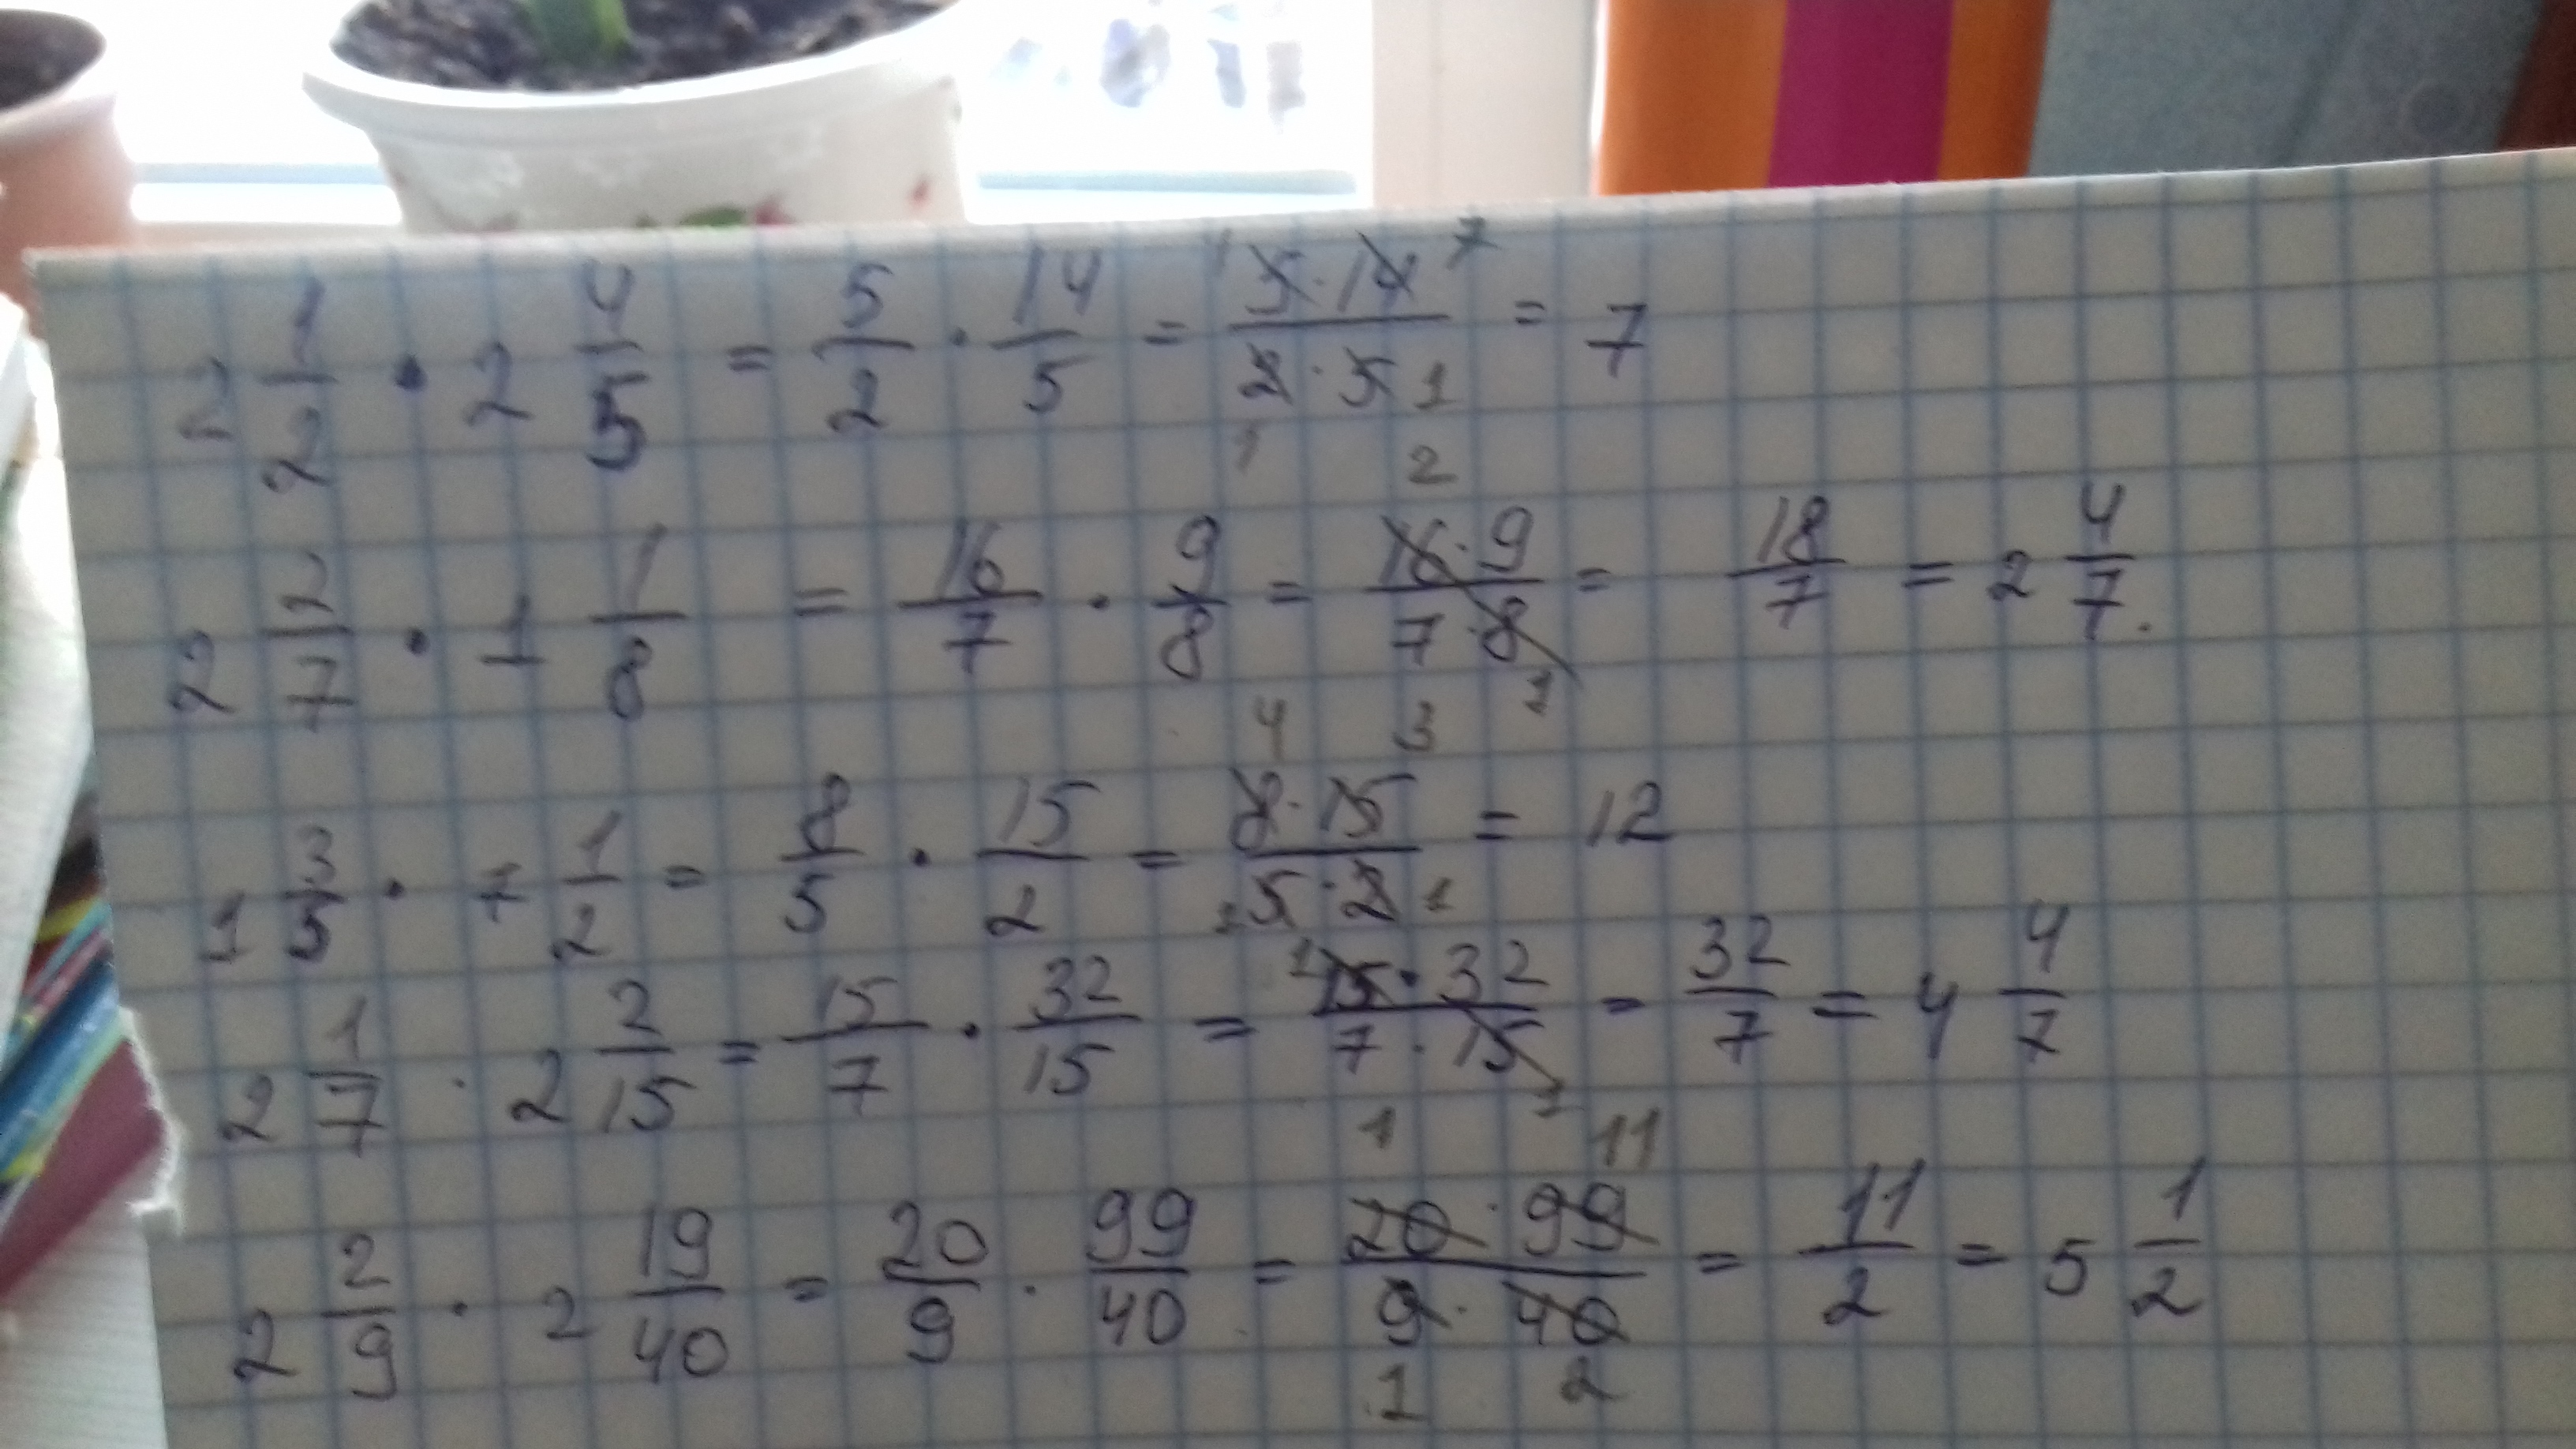 2 1/2 · 2 4/5 = 5/2 · 14/5 = 5·14/2·5 = 7
2 2/7 · 1 1/8 = 16/7 · 9/8 = 16·9/7·8 = 18/7 = 2 4/7.
1 3/5 · 7 1/2 = 8/5 · 15/2 = 8·15/5·2 = 12
2 1/7 · 2 2/15 = 15/7 · 32/15 = 15·32/7·15 = 32/7 = 4 4/7
2 2/9 · 2 19/40 = 20/9 · 99/40 = 20·99/9·40 = 11/2 = 5 1/2